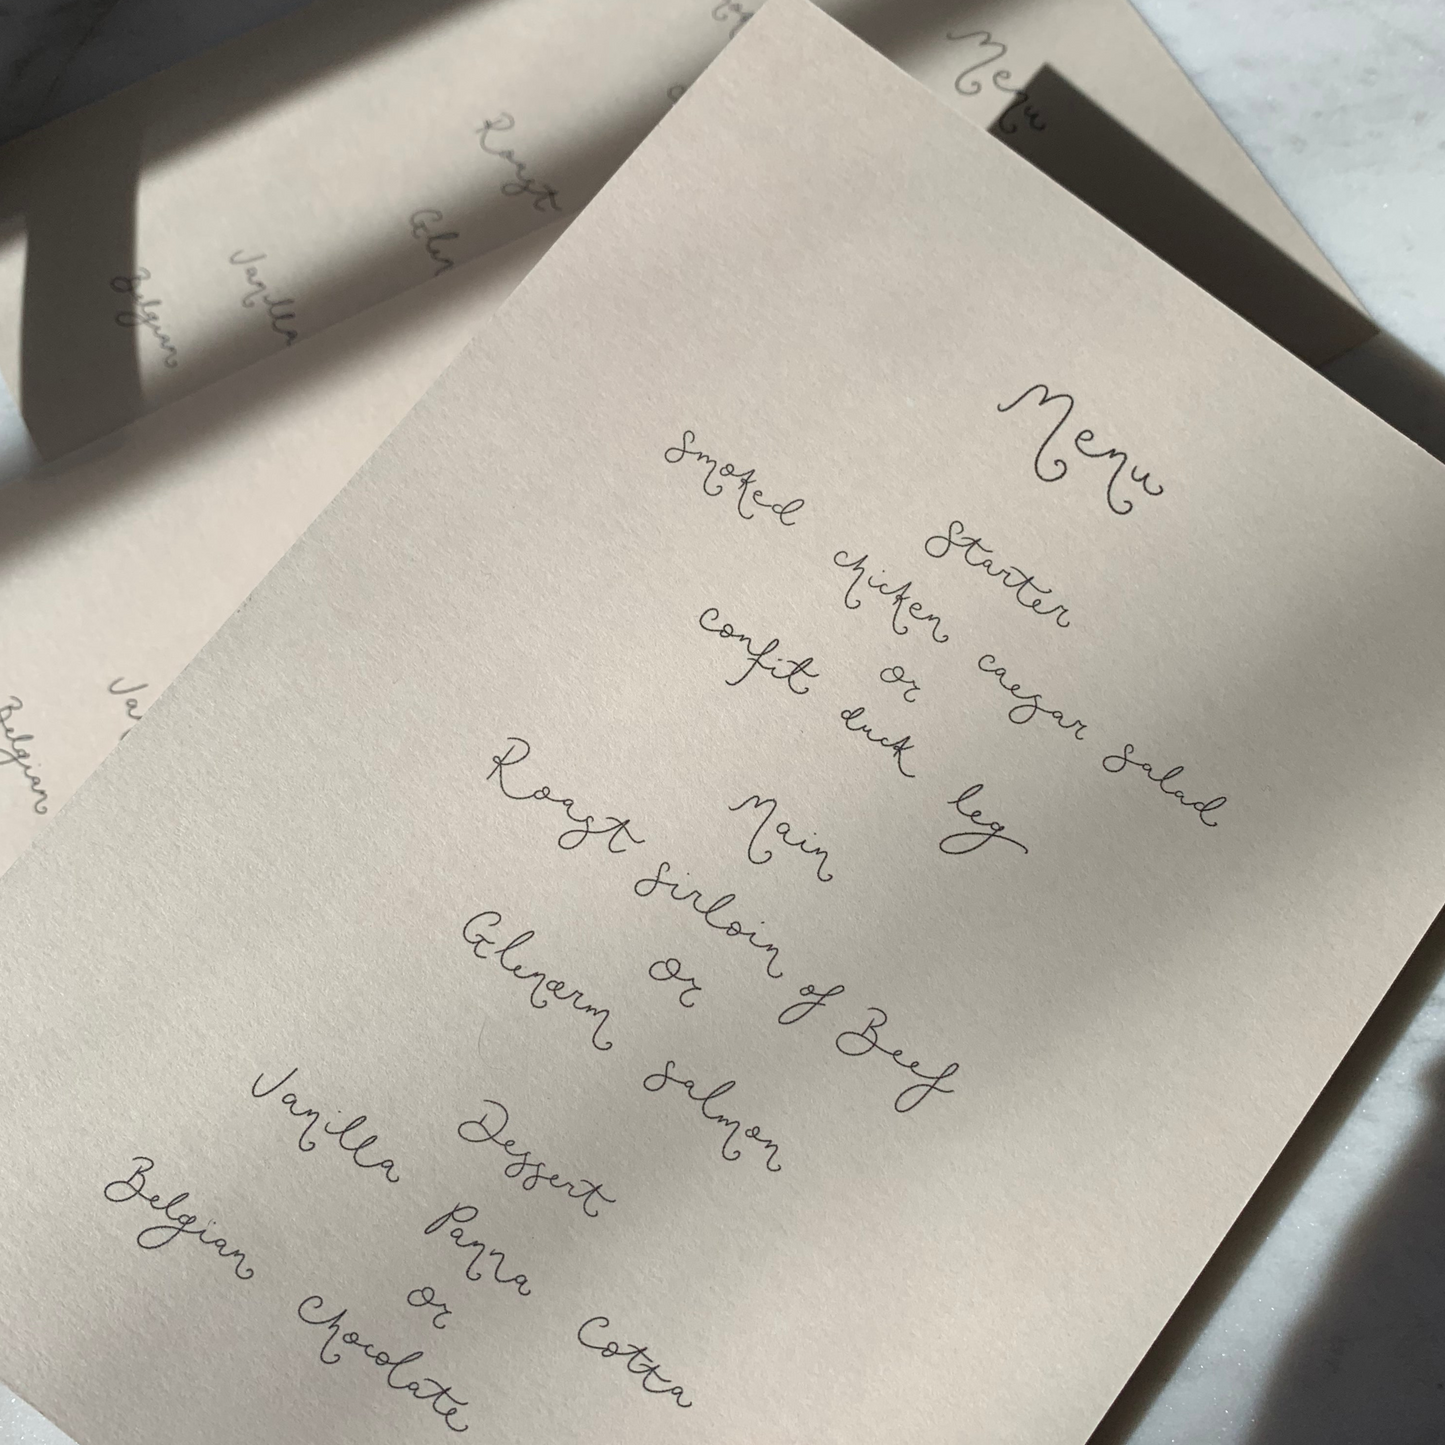 Menu
Starter
smoked chicken caesar salad
or
confit duck leg
Main
Roast sirloin of Beef
or
Glenarm salmon
Dessert
Vanilla Panna Cotta
or
Belgian Chocolate
Menu
Roast
Glen
Vanilla
Belgian
Va
Belgian